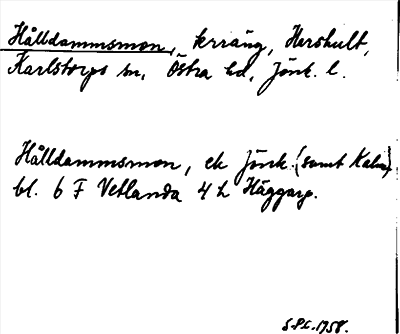 Hålldammsmon, terräng, Hershult,
Karlstorps sn, Östra hd, Jönk. l.
Hålldammsmon, ek Jönk. (samt Kalm)
bl. 6 F Vetlanda 4 h Häggarp.
S.P.C. 1758.